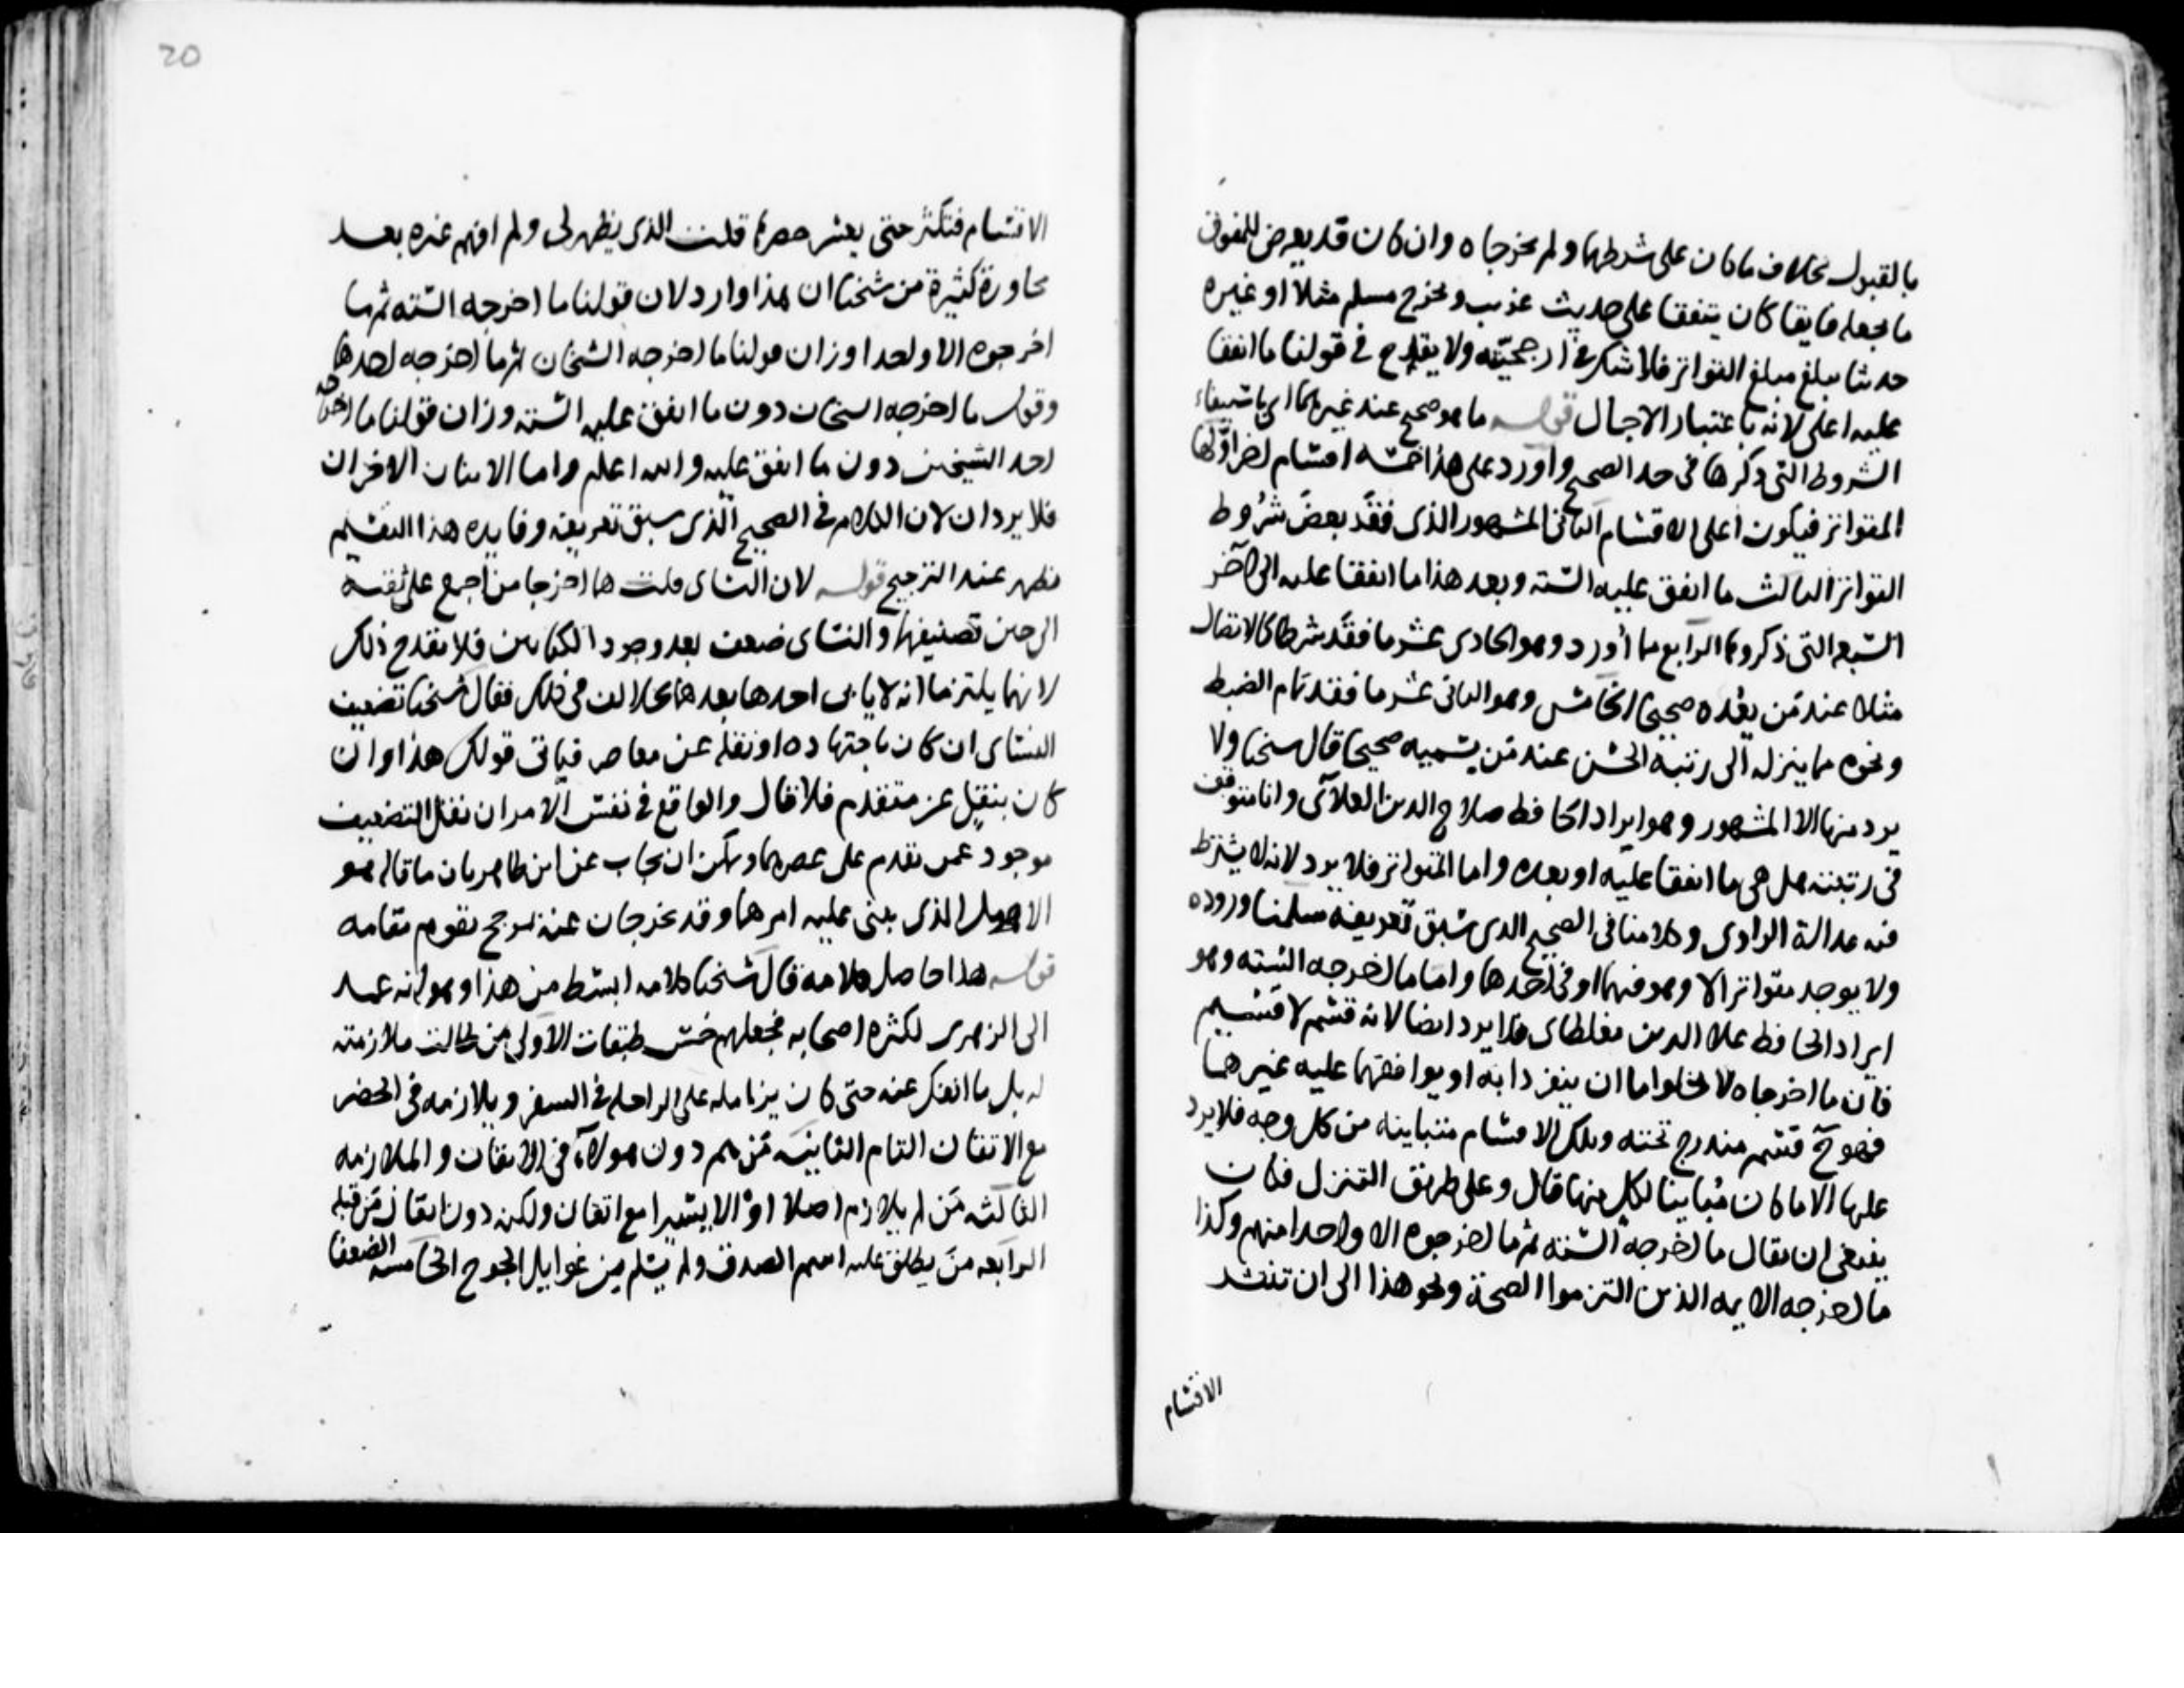 بالقبول بخلاف ماكان على شرطهما ولم يخرجاه وان كان قد يعرض للمفوق
ما يجعله فايقا كان يتفقا على حديث غريب ويخرج مسلم مثلا او غيره
حديثا يبلغ مبلغ التواتر فلا شك في ارجحيته ولا يقدح في قولنا ما اتفقا
عليه اعلى لانه باعتبار الاجمال قوله ما هو صحيح عند غيرهما اي باستيفاء
الشروط التي ذكرها في حد الصحيح واورد على هذا خمسة اقسام اخر اولها
المتواتر فيكون اعلى الاقسام الثاني المشهور الذي فقد بعض شروط
التواتر الثالث ما اتفق عليه الستة وبعد هذا ما اتفقا عليه الى آخر
السبعة التي ذكروها الرابع مما أورد وهو الحادي عشر ما فقد شرطا كالاتصال
مثلا عند من يعده صحيحا الخامس وهو الثاني عشر ما فقد تمام الضبط
ونحوه مما ينزله الى رتبة الحسن عند من يسميه صحيحا قال شيخنا ولا
يرد منها الا المشهور وهو ايراد الحافظ صلاح الدين العلآى وانا متوقف
في رتبته هل هي ما اتفقا عليه او بعده واما المتواتر فلا يرد لانه لا يشترط
فيه عدالة الراوى وكلامنا في الصحيح الذى سبق تعريفه سلمنا وروده
ولا يوجد متواتر الا وهو فيهما او في احدهما واما ما اخرجه الستة وهو
ايراد الحافظ علا الدين مغلطاى فلا يرد ايضا لانه قسم لا قسيم
فان ما اخرجاه لا يخلوا اما ان ينفردا به او يوافقهما عليه غيرهما
فهو ح قسم مندرج تحته وتلك الاقسام متباينه من كل وجه فلا يرد
عليها الا ما كان مباينا لكل منها قال وعلى طريق التنزل فكان
ينبغى ان يقال ما اخرجه الستة ثم ما اخرجوه الا واحدا منهم وكذا
ما اخرجه الايمه الذين التزموا الصحة ونحو هذا الى ان تنتشر
الاقسام
20
الاقسام فتكثر حتى يعسر حصرها قلت الذى يظهر لى ولم افهم غيره بعد
محاورة كثيرة من شيخنا ان هذا وارد لان قولنا ما اخرجه الستة ثم ما
اخرجوه الا واحدا وزان قولنا ما اخرجه الشيخان ثم ما اخرجه احدهما
وقول ما اخرجه الشيخان دون ما اتفق عليه الستة وزان قولنا ما اخرجه
احد الشيخين دون ما اتفق عليه والله اعلم واما الاثنان الاخران
فلا يردان لان الكلام في الصحيح الذى سبق تعريفه وفايده هذا التقسيم
تظهر عند الترجيح قوله لان النساى قلت هما اخرجا من اجمع على ثقته
الى حين تصنيفهما والنساى ضعف بعد وجود الكتابين فلا يقدح ذلك
لانهما يلتزما انه لا ياتى احد بعدهما يخالف في ذلك فقال شيخنا تضعيف
النساى ان كان باجتهاده او نقله عن معاصر فياتى قولك هذا وان
كان ينقل عن متقدم فلا قال والواقع في نفس الامر ان نقل التضعيف
موجود عمن تقدم على عصرهما ويمكن ان يجاب عن ابن طاهر بان ما قاله هو
الاصل الذى بنى عليه امرهما وقد يخرجان عنه لمرجح يقوم مقامه
قوله هذا حاصل كلامه قال شيخنا كلامه ابسط من هذا وهو انه عمد
الى الزهرى لكثرة اصحابه فجعلهم خمس طبقات الاولى من طالت ملازمته
له بل ما انفك عنه حتى كان يزامله على الراحله في السفر ويلازمه في الحضر
مع الاتقان التام الثانيه من هم دون هولاء في الاتقان والملازمه
الثالثه من لم يلازم اصلا او الا يسيرا مع اتقان ولكن دون اتقان من قبله
الرابعه من يطلق عليه اسم الصدق ولم يسلم من غوايل الجرح الخامسه الضعفا